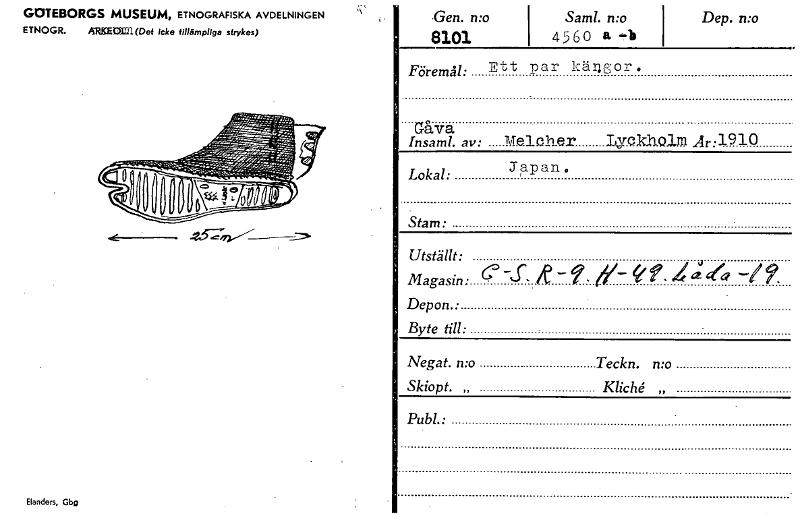 GÖTEBORGS MUSEUM, ETNOGRAFISKA AVDELNINGEN
ETNOGR. ARKEOLOG (Det icke tillämpliga strykes)
25 cm
Elanders, Gbg
Gen. n:o Saml. n:o Dep. n:o
8101 4560 a-b
Föremål: Ett par kängor.
Gåva
Insaml. av: Melcher Lyckholm År: 1910
Lokal: Japan.
Stam:
Utställt:
Magasin: C-S. R-9. H-49. Låda-19.
Depon.:
Byte till:
Negat. n:o Teckn. n:o
Skiopt. „ Kliché „
Publ.: